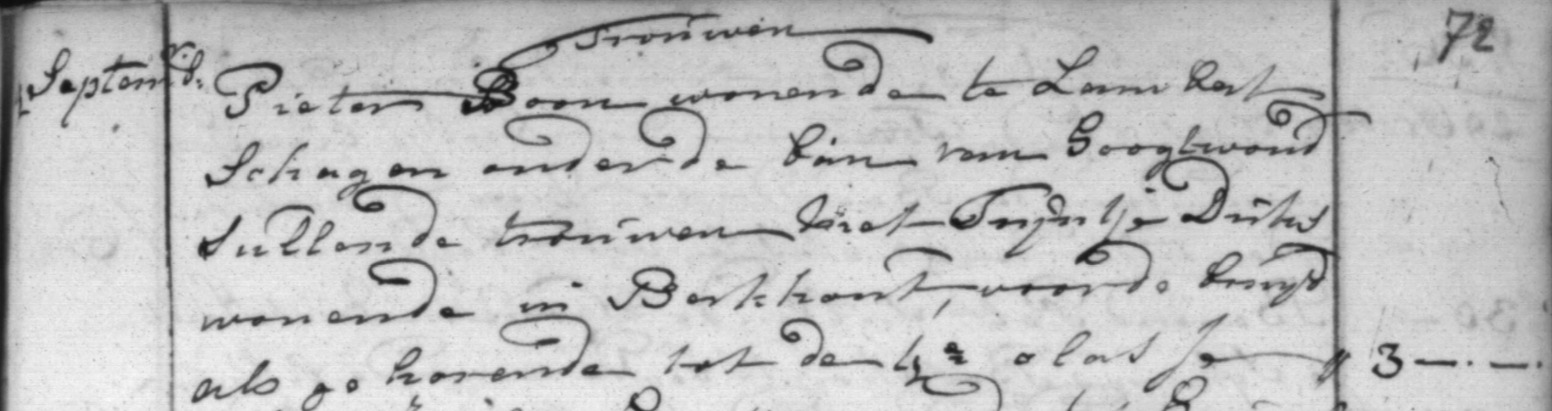 Trouwen
72
Septemb:
Pieter Boon wonende te Lambert
Schagen onder de ban van Hoogtwoud
Sullende trouwen met Trijntje Dirks
wonende in Berkhout, voor de bruyd
als gehorende tot de 4e Clas f 3 —. —.